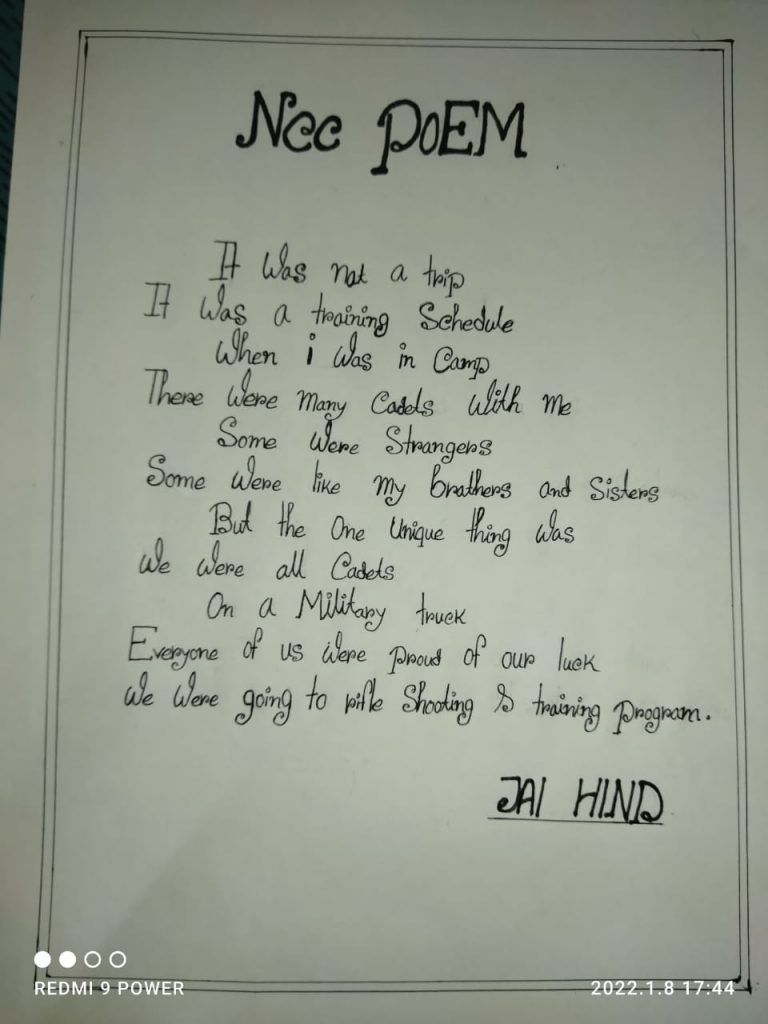 Ncc POEM
It was not a trip
It was a training Schedule
When i was in Camp
There were many Cadets with me
Some were Strangers
Some were like my brothers and Sisters
But the One Unique thing was
We were all Cadets
On a Military truck
Everyone of us were proud of our luck
We were going to rifle Shooting & training program.
JAI HIND
REDMI 9 POWER
2022.1.8 17:44